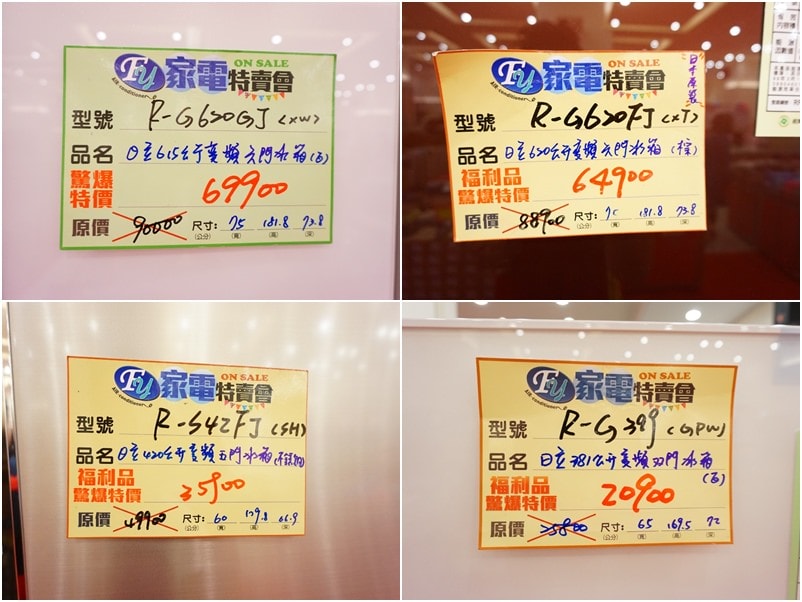 FY 家電特賣會 ON SALE
AIR conditioner
型號 R-G620GJ (XW)
品名 日立615公升變頻六門冰箱(白)
驚爆特價 69900
原價 90000 尺寸:(公分) 75(寬) 181.8(高) 73.8(深)
FY 家電特賣會 ON SALE
AIR conditioner
日本原裝
型號 R-G620FJ (XT)
品名 日立620公升變頻六門冰箱(棕)
福利品
驚爆特價 64900
原價 88900 尺寸:(公分) 75(寬) 181.8(高) 73.8(深)
FY 家電特賣會 ON SALE
AIR conditioner
型號 R-S42FJ (SH)
品名 日立420公升變頻五門冰箱
福利品
驚爆特價 35900
原價 49900 尺寸:(公分) 60(寬) 179.8(高) 66.9(深)
FY 家電特賣會 ON SALE
AIR conditioner
型號 R-G399 (GPW)
品名 日立381公升變頻双門冰箱(白)
福利品
驚爆特價 20900
原價 25800 尺寸:(公分) 65(寬) 169.5(高) 72(深)